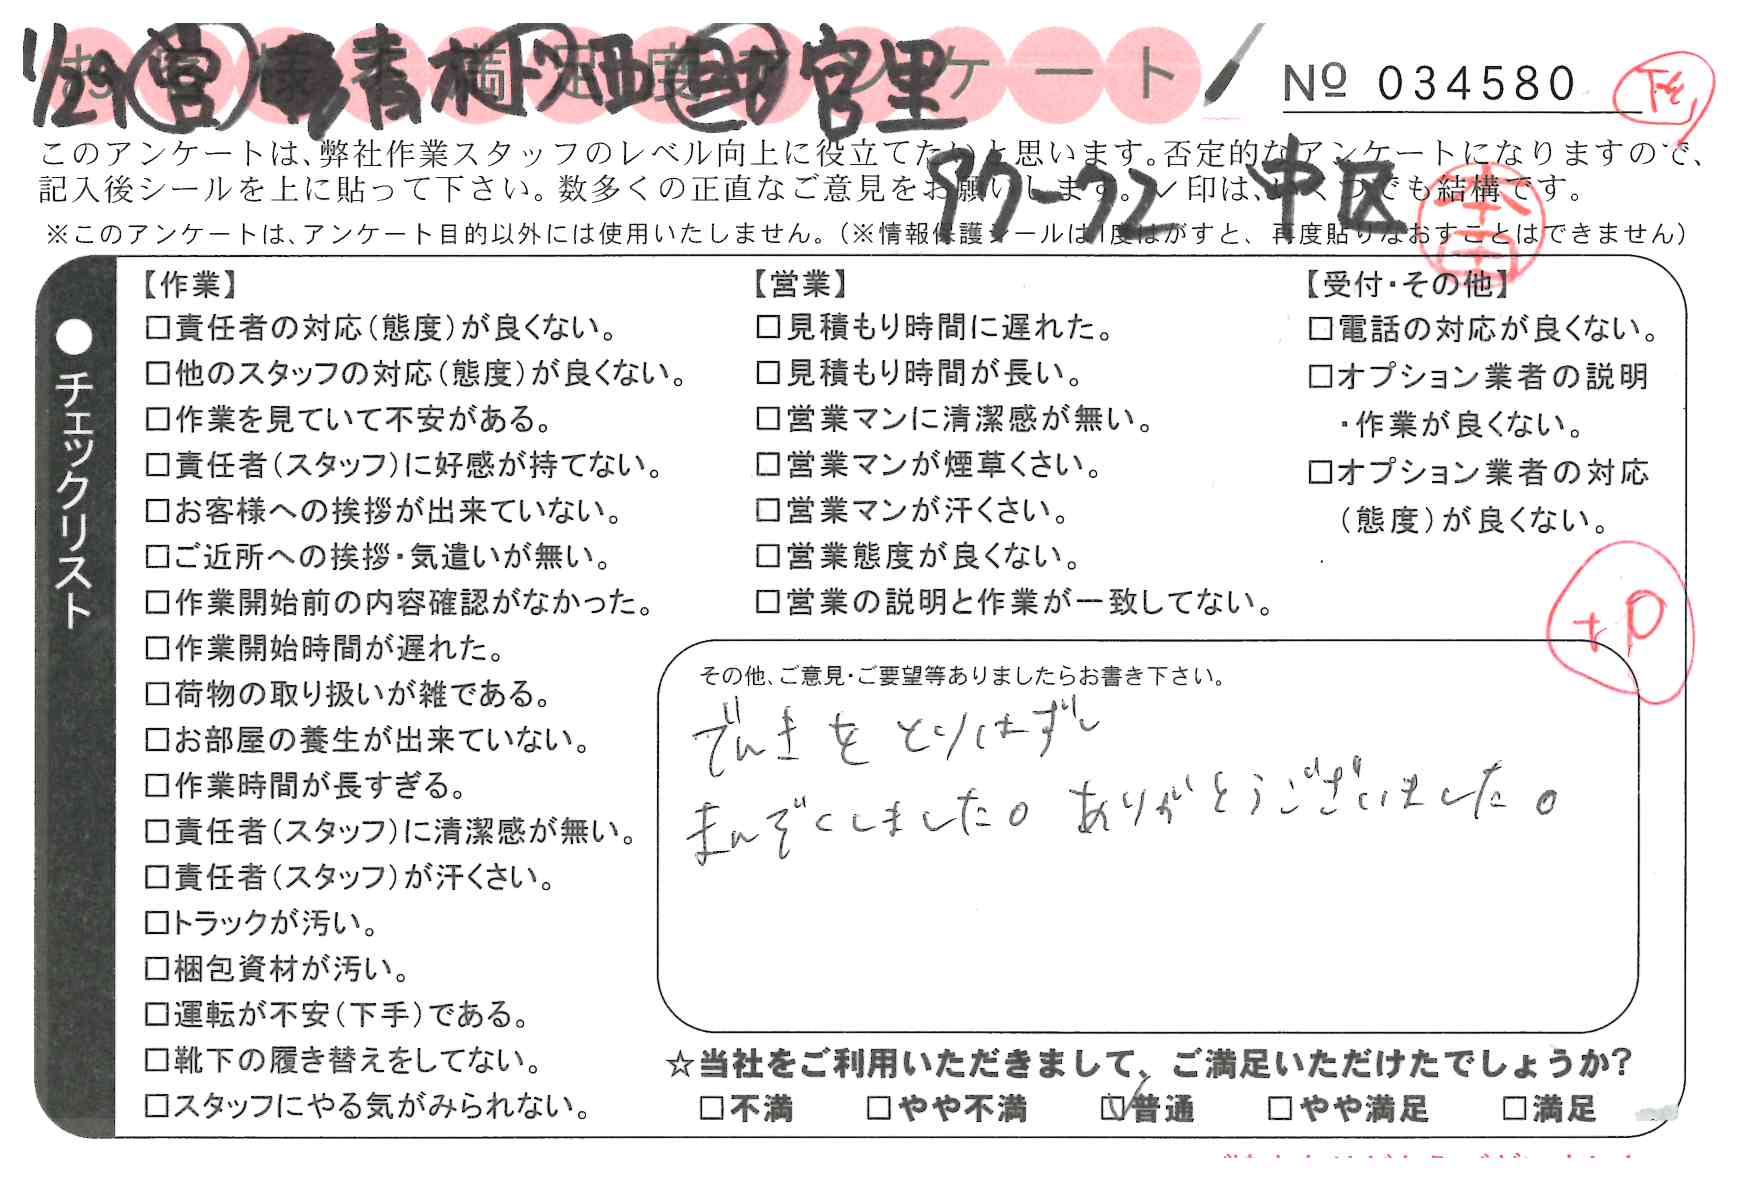 お客様不満足度アンケート
1/29 営 青木 ド 西 宮里
Nº 034580
このアンケートは、弊社作業スタッフのレベル向上に役立てたいと思います。否定的なアンケートになりますので、
記入後シールを上に貼って下さい。数多くの正直なご意見をお願いします。✓印は、いくつでも結構です。
中区
※このアンケートは、アンケート目的以外には使用いたしません。(※情報保護シールは1度はがすと、再度貼りなおすことはできません)
●チェックリスト
【作業】
□責任者の対応(態度)が良くない。
□他のスタッフの対応(態度)が良くない。
□作業を見ていて不安がある。
□責任者(スタッフ)に好感が持てない。
□お客様への挨拶が出来ていない。
□ご近所への挨拶・気遣いが無い。
□作業開始前の内容確認がなかった。
□作業開始時間が遅れた。
□荷物の取り扱いが雑である。
□お部屋の養生が出来ていない。
□作業時間が長すぎる。
□責任者(スタッフ)に清潔感が無い。
□責任者(スタッフ)が汗くさい。
□トラックが汚い。
□梱包資材が汚い。
□運転が不安(下手)である。
□靴下の履き替えをしてない。
□スタッフにやる気がみられない。
【営業】
□見積もり時間に遅れた。
□見積もり時間が長い。
□営業マンに清潔感が無い。
□営業マンが煙草くさい。
□営業マンが汗くさい。
□営業態度が良くない。
□営業の説明と作業が一致してない。
【受付・その他】
□電話の対応が良くない。
□オプション業者の説明
・作業が良くない。
□オプション業者の対応
(態度)が良くない。
+P
その他、ご意見・ご要望等ありましたらお書き下さい。
でんきをとりはずし
まんぞくしました。ありがとうございました。
☆当社をご利用いただきまして、ご満足いただけたでしょうか?
□不満 □やや不満 ☑普通 □やや満足 □満足